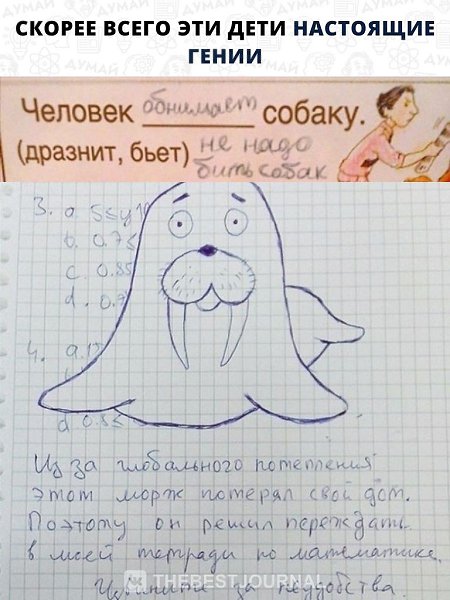 СКОРЕЕ ВСЕГО ЭТИ ДЕТИ НАСТОЯЩИЕ
ГЕНИИ
Человек обнимает собаку.
(дразнит, бьет) не надо
бить собак
3. a 5≤y
b. 0.75
c. 0.85
d. 0.
4. a.
d 0.85
Из за глобального потепления
этот морж потерял свой дом.
Поэтому он решил переждать
в моей тетради по математике.
Извините за неудобства.
THEBESTJOURNAL